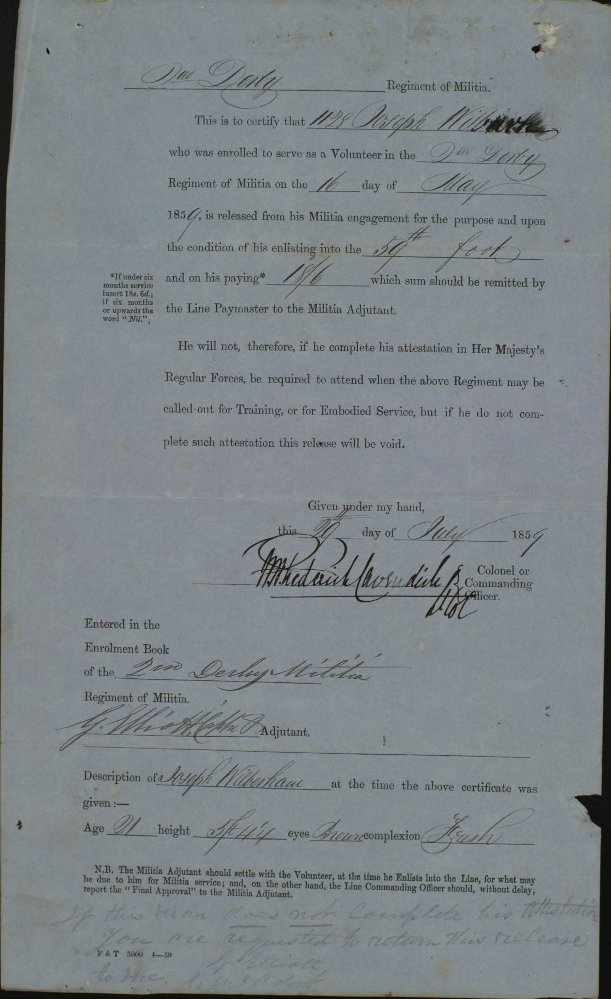 2nd Derby Regiment of Militia.
This is to certify that 1128 Joseph
who was enrolled to serve as a Volunteer in the 2nd Derby
Regiment of Militia on the 16 day of May
1859, is released from his Militia engagement for the purpose and upon
the condition of his enlisting into the 59th foot
*If under six
months service
insert 18s. 6d.;
if six months
or upwards the
word "Nil."
and on his paying* 18/6 which sum should be remitted by
the Line Paymaster to the Militia Adjutant.
He will not, therefore, if he complete his attestation in Her Majesty's
Regular Forces, be required to attend when the above Regiment may be
called out for Training, or for Embodied Service, but if he do not com-
plete such attestation this release will be void.
Given under my hand,
this 29th day of July 1859
Cavendish Colonel or
Commanding
Officer.
Entered in the
Enrolment Book
of the 2nd Derby Militia
Regiment of Militia.
G. Elliott Capt & Adjutant.
Description of Joseph at the time the above certificate was
given:—
Age 21 height 5ft 4¼ eyes Brown complexion Fresh
N.B. The Militia Adjutant should settle with the Volunteer, at the time he Enlists into the Line, for what may
be due to him for Militia service; and, on the other hand, the Line Commanding Officer should, without delay,
report the "Final Approval" to the Militia Adjutant.
If this man does not complete his Attestation
You are requested to return this release
F & T 5000 4—59 G Elliott
to me